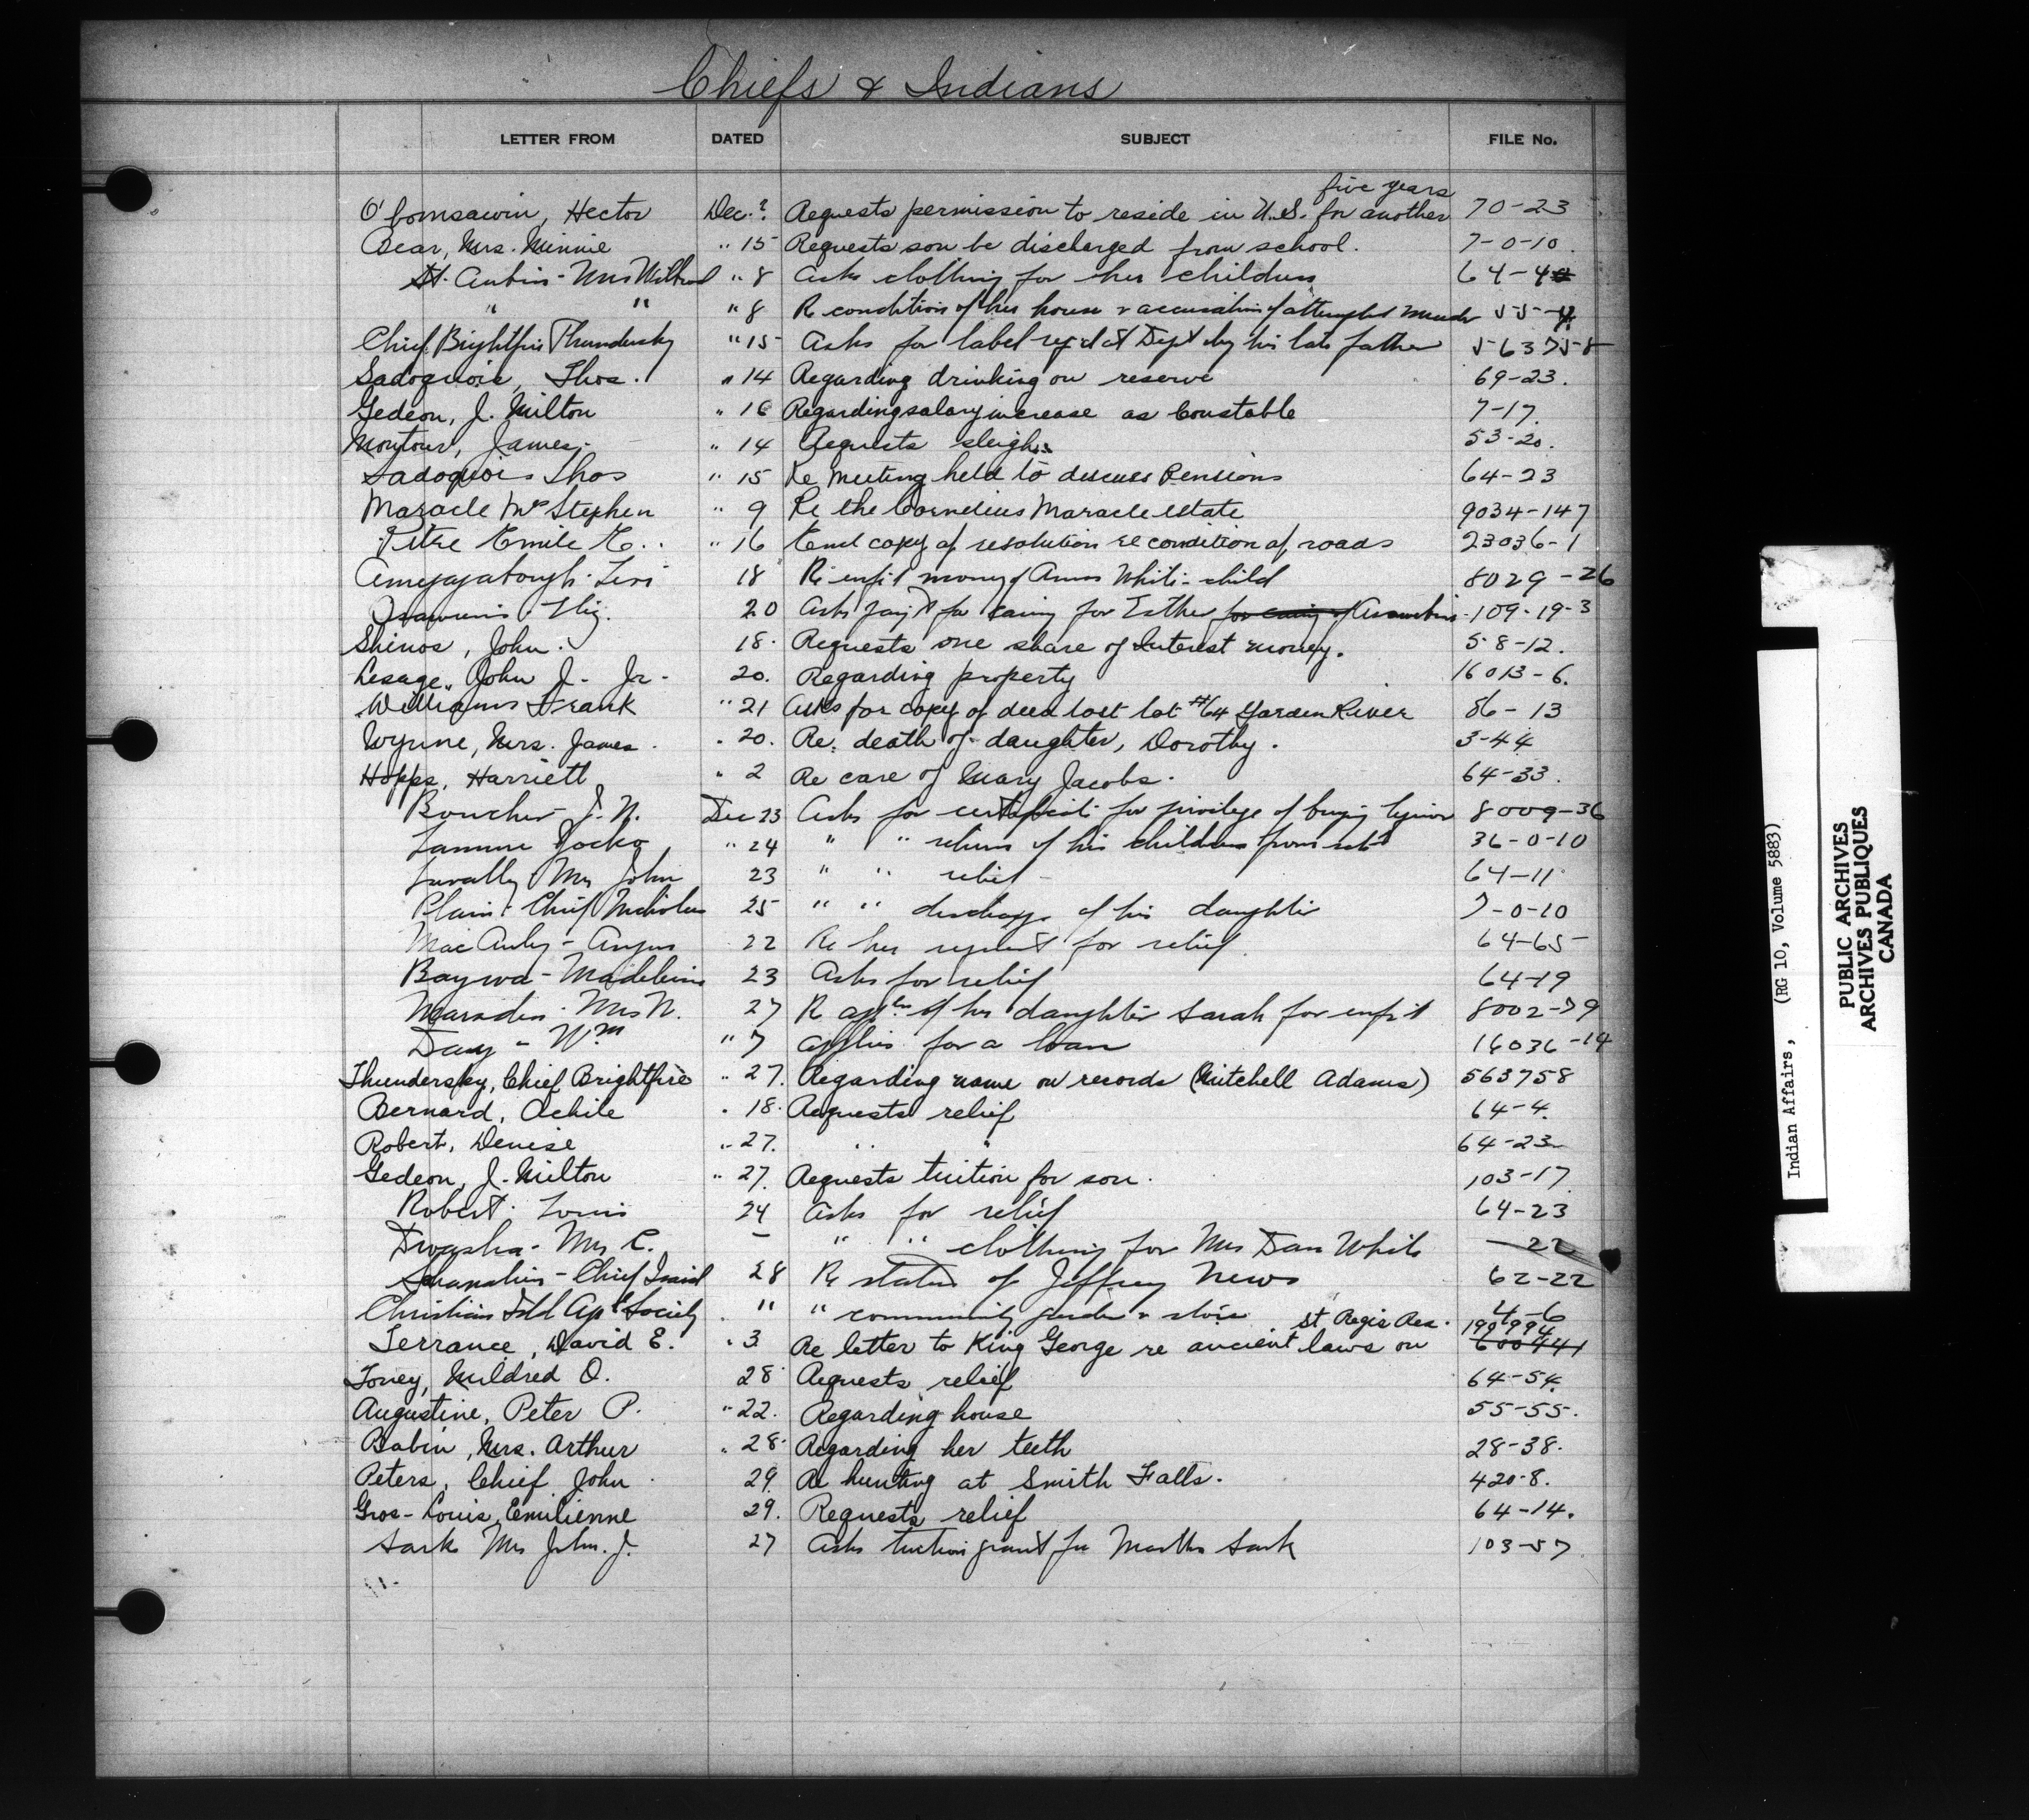 Chiefs & Indians
LETTER FROM DATED SUBJECT FILE No.
five years
O'bomsawin, Hector Dec. ? Requests permission to reside in U.S. for another 70-23
Bear, Mrs. Minnie " 15 Requests son be discharged from school. 7-0-10.
St. Aubin - Mrs " 8 Asks clothing for her children 64-4
" " " 8 Re condition of her house & accusation of attempted 55-4
Chief Brightfire Thundersky " 15 Asks for label reg'd at Dept by his late father 563758
Sadoquois, Thos. " 14 Regarding drinking on reserve 69-23.
Gedeon, J. Milton " 16 Regarding salary increase as Constable 7-17.
Montour, James. " 14 Requests sleighs. 53-20.
Sadoquois Thos " 15 Re Meeting held to discuss Pensions 64-23
Maracle Mrs Stephen " 9 Re the Cornelius Maracle estate 9034-147
Pitre Emile E. " 16 Send copy of resolution re condition of roads 23036-1
Levi 18 Re enf't money of White - child 8029-26
20 Asks for caring for Esther 109-19-3
Shinos, John. 18. Requests one share of Interest money. 58-12.
Lesage, John J. Jr. 20. Regarding property 16013-6.
Williams Frank " 21 Asks for copy of deed lost lot #64 Garden River 86-13
Wynne, Mrs. James. " 20. Re. death of daughter, Dorothy. 3-44
Hopps, Harriett " 2 Re care of Mary Jacobs. 64-33.
Boucher J. N. Dec 23 Asks for certificate for privilege of buying liquor 8009-36
Jocko " 24 " " return of his children from 36-0-10
Mrs John 23 " " relief - 64-11
Plain - Chief Nicholas 25 " " discharge of his daughter 7-0-10
Mac Auley - Angus 22 Re her request for relief 64-65
Baywa - Madeleine 23 Asks for relief 64-19
Marsden - Mrs N. 27 Re appln of her daughter Sarah for enf't 8002-79
Day - Wm " 7 Applies for a loan 16036-14
Thundersky, Chief Brightfire " 27. Regarding name on records (Mitchell Adams) 563758
Bernard, Achile " 18. Requests relief 64-4.
Robert, Denise " 27. " " 64-23
Gedeon, J. Milton " 27. Requests tuition for son. 103-17
Robert - Louis 24 Asks for relief 64-23
Mrs C. - " " clothing for Mrs Dan White -22
Chief 28 Re status of Jeffrey News 62-22
Christian Society " " community garden & store 4-6
St Regis Res. 199994
Terrance, David E. " 3 Re letter to King George re ancient laws on 600441
Toney, Mildred O. 28 Requests relief 64-54.
Augustine, Peter P. " 22. Regarding house 55-55.
Babin, Mrs. Arthur " 28. Regarding her teeth 28-38.
Peters, Chief John 29. Re hunting at Smith Falls. 420-8.
Gros-Louis, Emilienne 29. Requests relief 64-14.
Sark Mrs John. J. 27 Asks tuition grant for Martha Sark 103-57
Indian Affairs, (RG 10, Volume 5883)
PUBLIC ARCHIVES
ARCHIVES PUBLIQUES
CANADA